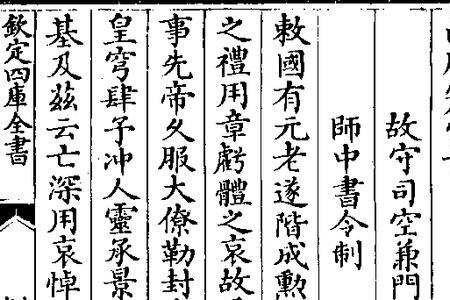 故守司空兼門
師中書令制
敕國有元老遂階成勲
之禮用章虧體之哀故
事先帝久服大僚勒封
皇穹肆予冲人靈承景
基及兹云亡深用哀悼
欽定四庫全書